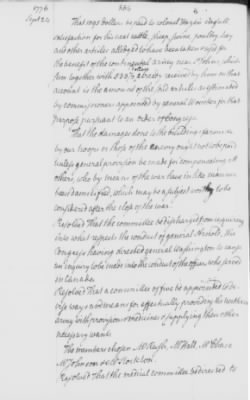 1776
Sept 24
That 1095 dollars be paid to colonel Hazen in full
satisfaction for his neat cattle, sheep, swine, poultry, hay
and other articles alledged to have been taken & used for
the benefit of the continental army near St Johns, which
sum together with 533 2/3 dollars already received by him on that
account is the amount of the said articles as estimated
by commissioners appointed by general Wooster for that
purpose pursuant to an order of Congress
That the damages done to the buildings & farm either
by our troops or those of the enemy ought not to be paid
unless general provision be made for compensating all
others, who by means of the war have in like manner
been damnified, which may be a subject worthy to be
considered after the close of the war.
Resolved That the committee be discharged from enquiring
into what respects the conduct of general Arnold, this
Congress having directed general Washington to cause
an enquiry to be made into the conduct of the officers who served
in Canada.
Resolved That a committee of five be appointed to devise
ways and means for effectually providing the northern
army with provisions & medicines & supplying their other
necessary wants.
The members chosen Mr Rush, Mr Hall, Mr Chase
Mr Johnson & Mr Stockton.
Resolved That the medical committee be directed to